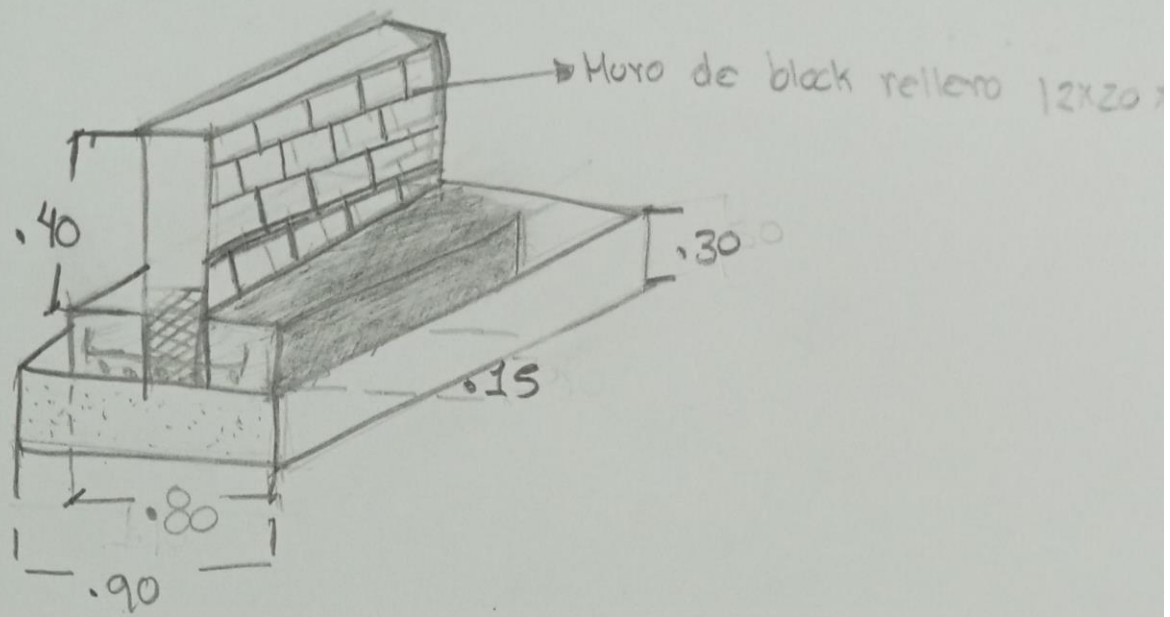 Muro de block relleno 12x20x
.40
.30
.15
.80
.90